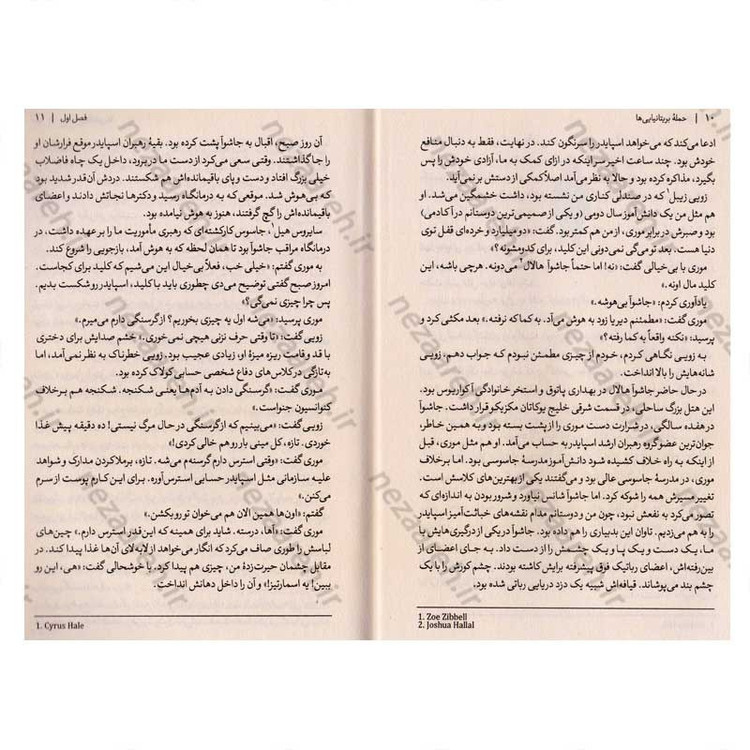 ۱۰ | حملهٔ بریتانیایی‌ها
ادعا می‌کند که می‌خواهد اسپایدر را سرنگون کند. در نهایت، فقط به دنبال منافع
خودش بود. چند ساعت اخیر سر اینکه در ازای کمک به ما، آزادی خودش را پس
بگیرد، مذاکره کرده بود و حالا به نظر می‌آمد اصلا کمکی از دستش برنمی‌آید.
زویی زیبل۱ که در صندلی کناری من نشسته بود، داشت خشمگین می‌شد. او
هم مثل من یک دانش‌آموز سال دومی (و یکی از صمیمی‌ترین دوستانم در آکادمی)
بود و صبرش در برابر موری، از من هم کمتر بود. گفت: «دو میلیارد و خرده‌ای قفل توی
دنیا هست. بعد تو می‌گی نمی‌دونی این کلید، برای کدومشونه؟»
موری با بی‌خیالی گفت: «نه! اما حتماً جاشوآ هالال۲ می‌دونه. هرچی باشه، این
کلید مال اونه.»
یادآوری کردم: «جاشوآ بی‌هوشه.»
موری گفت: «مطمئنم دیر یا زود به هوش می‌آد. به کما که نرفته.» بعد مکثی کرد و
پرسید: «نکنه واقعاً به کما رفته؟»
به زویی نگاهی کردم، خودم از چیزی مطمئن نبودم که جواب دهم. زویی
شانه‌هایش را بالا انداخت.
در حال حاضر جاشوآ هالال در بهداری پاتوق و استخر خانوادگی آکواریوس بود.
این هتل بزرگ ساحلی، در قسمت شرقی خلیج یوکاتان مکزیکو قرار داشت. جاشوآ
در هفده سالگی، در شرارت دست موری را از پشت بسته بود و به همین خاطر،
جوان‌ترین عضو گروه رهبران ارشد اسپایدر به حساب می‌آمد. او هم مثل موری، قبل
از اینکه به راه خلاف کشیده شود دانش‌آموز مدرسهٔ جاسوسی بود. اما برخلاف
موری، در مدرسهٔ جاسوسی عالی بود و می‌گفتند یکی از بهترین‌های کلاسش است.
تغییر مسیرش همه را شوکه کرد. اما جاشوآ شانس نیاورد و شرور بودن به اندازه‌ای که
تصور می‌کرد به نفعش نبود، چون من و دوستانم مدام نقشه‌های خباثت‌آمیز اسپایدر
را به هم می‌زدیم. تاوان این بدبیاری را هم داده بود. جاشوآ در یکی از درگیری‌هایش با
ما، یک دست و یک پا و یک چشمش را از دست داد. به جای اعضای از
بین‌رفته‌اش، اعضای رباتیک فوق پیشرفته برایش کاشته بودند. چشم کورش را با یک
چشم بند می‌پوشاند. قیافه‌اش شبیه یک دزد دریایی رباتی شده بود.
1. Zoe Zibbell
2. Joshua Hallal
فصل اول | ۱۱
آن روز صبح، اقبال به جاشوآ پشت کرده بود. بقیهٔ رهبران اسپایدر موقع فرارشان او
را جا گذاشتند. وقتی سعی می‌کرد از دست ما دربرود، داخل یک چاه فاضلاب
خیلی بزرگ افتاد و دست و پای باقیمانده‌اش هم شکستند. دردش آن‌قدر شدید بود
که بی‌هوش شد. موقعی که به درمانگاه رسید و دکترها نجاتش دادند و اعضای
باقیمانده‌اش را گچ گرفتند، هنوز به هوش نیامده بود.
سایروس هیل۱، جاسوس کارکشته‌ای که رهبری مأموریت ما را بر عهده داشت، در
درمانگاه مراقب جاشوآ بود تا همان لحظه که به هوش آمد، بازجویی را شروع کند.
به موری گفتم: «خیلی خب، فعلاً بی‌خیال این می‌شیم که کلید برای کجاست.
امروز صبح گفتی توضیح می‌دی چطوری باید با کلید، اسپایدر رو شکست بدیم.
پس چرا چیزی نمی‌گی؟»
موری پرسید: «می‌شه اول یه چیزی بخوریم؟ از گرسنگی دارم می‌میرم.»
زویی گفت: «تا وقتی حرف نزنی هیچی نمی‌خوری.» خشم صدایش برای دختری
با قد و قامت ریزه میزهٔ او زیادی عجیب بود. زویی خطرناک به نظر نمی‌آمد، اما
به‌تازگی در کلاس‌های دفاع شخصی حسابی کولاک کرده بود.
موری گفت: «گرسنگی دادن به آدم‌ها یعنی شکنجه. شکنجه هم برخلاف
کنوانسیون جنواست.»
زویی گفت: «می‌بینیم که از گرسنگی در حال مرگ نیستی! ده دقیقه پیش غذا
خوردی. تازه، کل مینی بار رو هم خالی کردی!»
موری گفت: «وقتی استرس دارم گرسنه‌م می‌شه. تازه، برملاکردن مدارک و شواهد
علیه سازمانی مثل اسپایدر حسابی استرس‌آوره. برای این کارم پوست از سرم
می‌کنن.»
گفتم: «اون‌ها همین الان هم می‌خوان تو رو بکشن.»
موری گفت: «آها، درسته. شاید برای همینه که این‌قدر استرس دارم.» چین‌های
لباسش را طوری صاف می‌کرد که انگار می‌خواهد از لابه‌لای آن‌ها غذا پیدا کند. در
مقابل چشمان حیرت‌زدهٔ من، چیزی هم پیدا کرد. با خوشحالی گفت: «هی، این رو
ببین! یه اسمارتیز!» و آن را داخل دهانش انداخت.
1. Cyrus Hale
nezaareh.ir